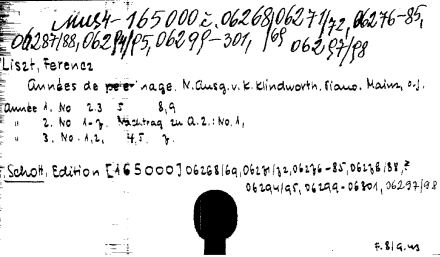 Mus4-165000 č. 06268, 06271/72, 06276-85,
06287/88, 06294/95, 06299-301, /69 06297/98
Liszt, Ferencz
Années de pelerinage. N. Ausg. v. K. Klindworth. Piano. Mainz, o. J.
Année 1. No 2.3 5 8,9
" 2. No 1-7. Nachtrag zu A. 2.: No. 1,
" 3. No. 1, 2, 4,5. 7.
Schott, Edition [165000] 06268/69, 06271/72, 06276-85, 06278/88,
06294/95, 06299-06301, 06297/98
F. 8/9.43